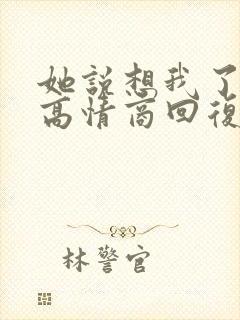 她説想我了
高情商回復
林警官